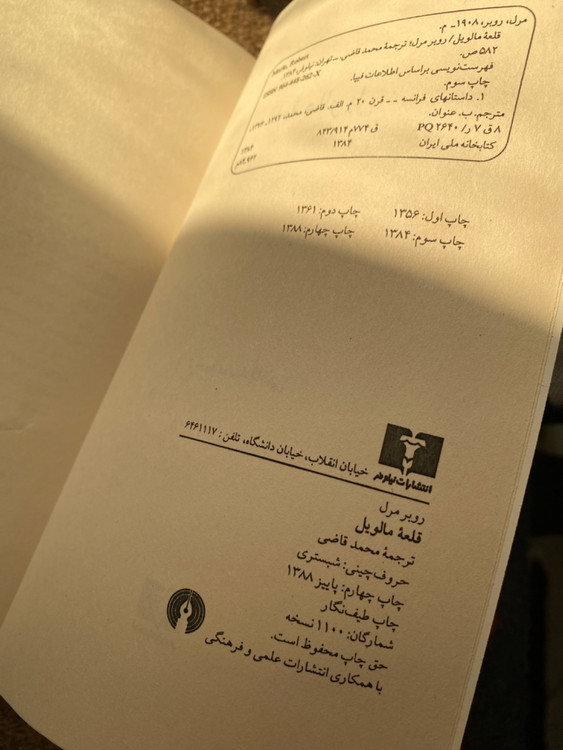 مرل، روبر، ۱۹۰۸ـ م.
قلعهٔ مالویل/ روبر مرل؛ ترجمهٔ محمد قاضی. ــ تهران: نیلوفر، ۱۳۸۴.
۵۸۲ ص.
ISBN: 964-448-262-X
Merle, Robert
فهرست‌نویسی براساس اطلاعات فیپا.
چاپ سوم.
۱. داستانهای فرانسه ــ قرن ۲۰ م. الف. قاضی، محمد، ۱۲۹۲ـ۱۳۷۶،
مترجم. ب. عنوان.
۸ ق ۷ ر/ PQ ۲۶۴۰ ق ۷۷۴ م ۸۴۳/۹۱۴
۱۳۸۴ ۱۳۸۴
کتابخانه ملی ایران
چاپ اول: ۱۳۵۶ چاپ دوم: ۱۳۶۱
چاپ سوم: ۱۳۸۴ چاپ چهارم: ۱۳۸۸
انتشارات نیلوفر
خیابان انقلاب، خیابان دانشگاه، تلفن: ۶۴۶۱۱۱۷
روبر مرل
قلعهٔ مالویل
ترجمهٔ محمد قاضی
حروف‌چینی: شبستری
چاپ چهارم: پاییز ۱۳۸۸
چاپ طیف‌نگار
شمارگان: ۱۱۰۰ نسخه
حق چاپ محفوظ است.
با همکاری انتشارات علمی و فرهنگی